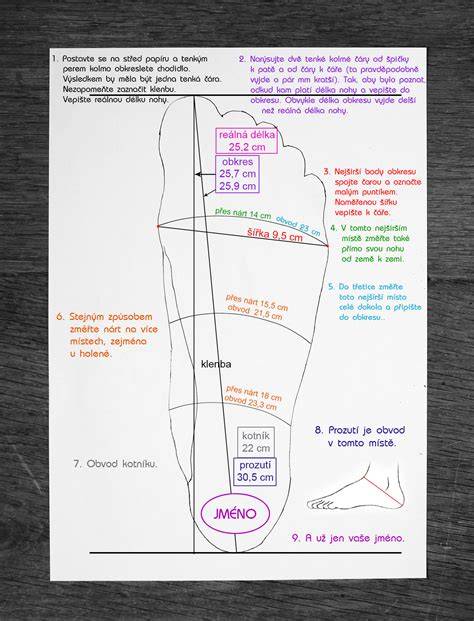 1. Postavte se na střed papíru a tenkým
perem kolmo obkreslete chodidlo.
Výsledkem by měla být jedna tenká čára.
Nezapomeňte zaznačit klenbu.
Vepište reálnou délku nohy.
2. Narýsujte dvě tenké kolmé čáry od špičky
k patě a od čáry k čáře (ta pravděpodobně
vyjde o pár mm kratší). Tak, aby byla poznat,
odkud kam platí délka nohy a vepište do
obkresu. Obvykle délka obkresu vyjde delší
než reálná délka nohy.
reálná délka
25,2 cm
obkres
25,7 cm
25,9 cm
3. Nejširší body obkresu
spojte čarou a označte
malým puntíkem.
Naměřenou šířku
vepište k čáře.
přes nárt 14 cm
obvod 23 cm
šířka 9,5 cm
4. V tomto nejširším
místě změřte také
přímo svou nohu
od země k zemi.
5. Do třetice změřte
toto nejširší místo
celé dokola a připište
do obkresu..
6. Stejným způsobem
změřte nárt na více
místech, zejména
u holeně.
přes nárt 15,5 cm
obvod 21,5 cm
klenba
přes nárt 18 cm
obvod 23,3 cm
7. Obvod kotníku.
kotník
22 cm
prozutí
30,5 cm
8. Prozutí je obvod
v tomto místě.
JMÉNO
9. A už jen vaše jméno.